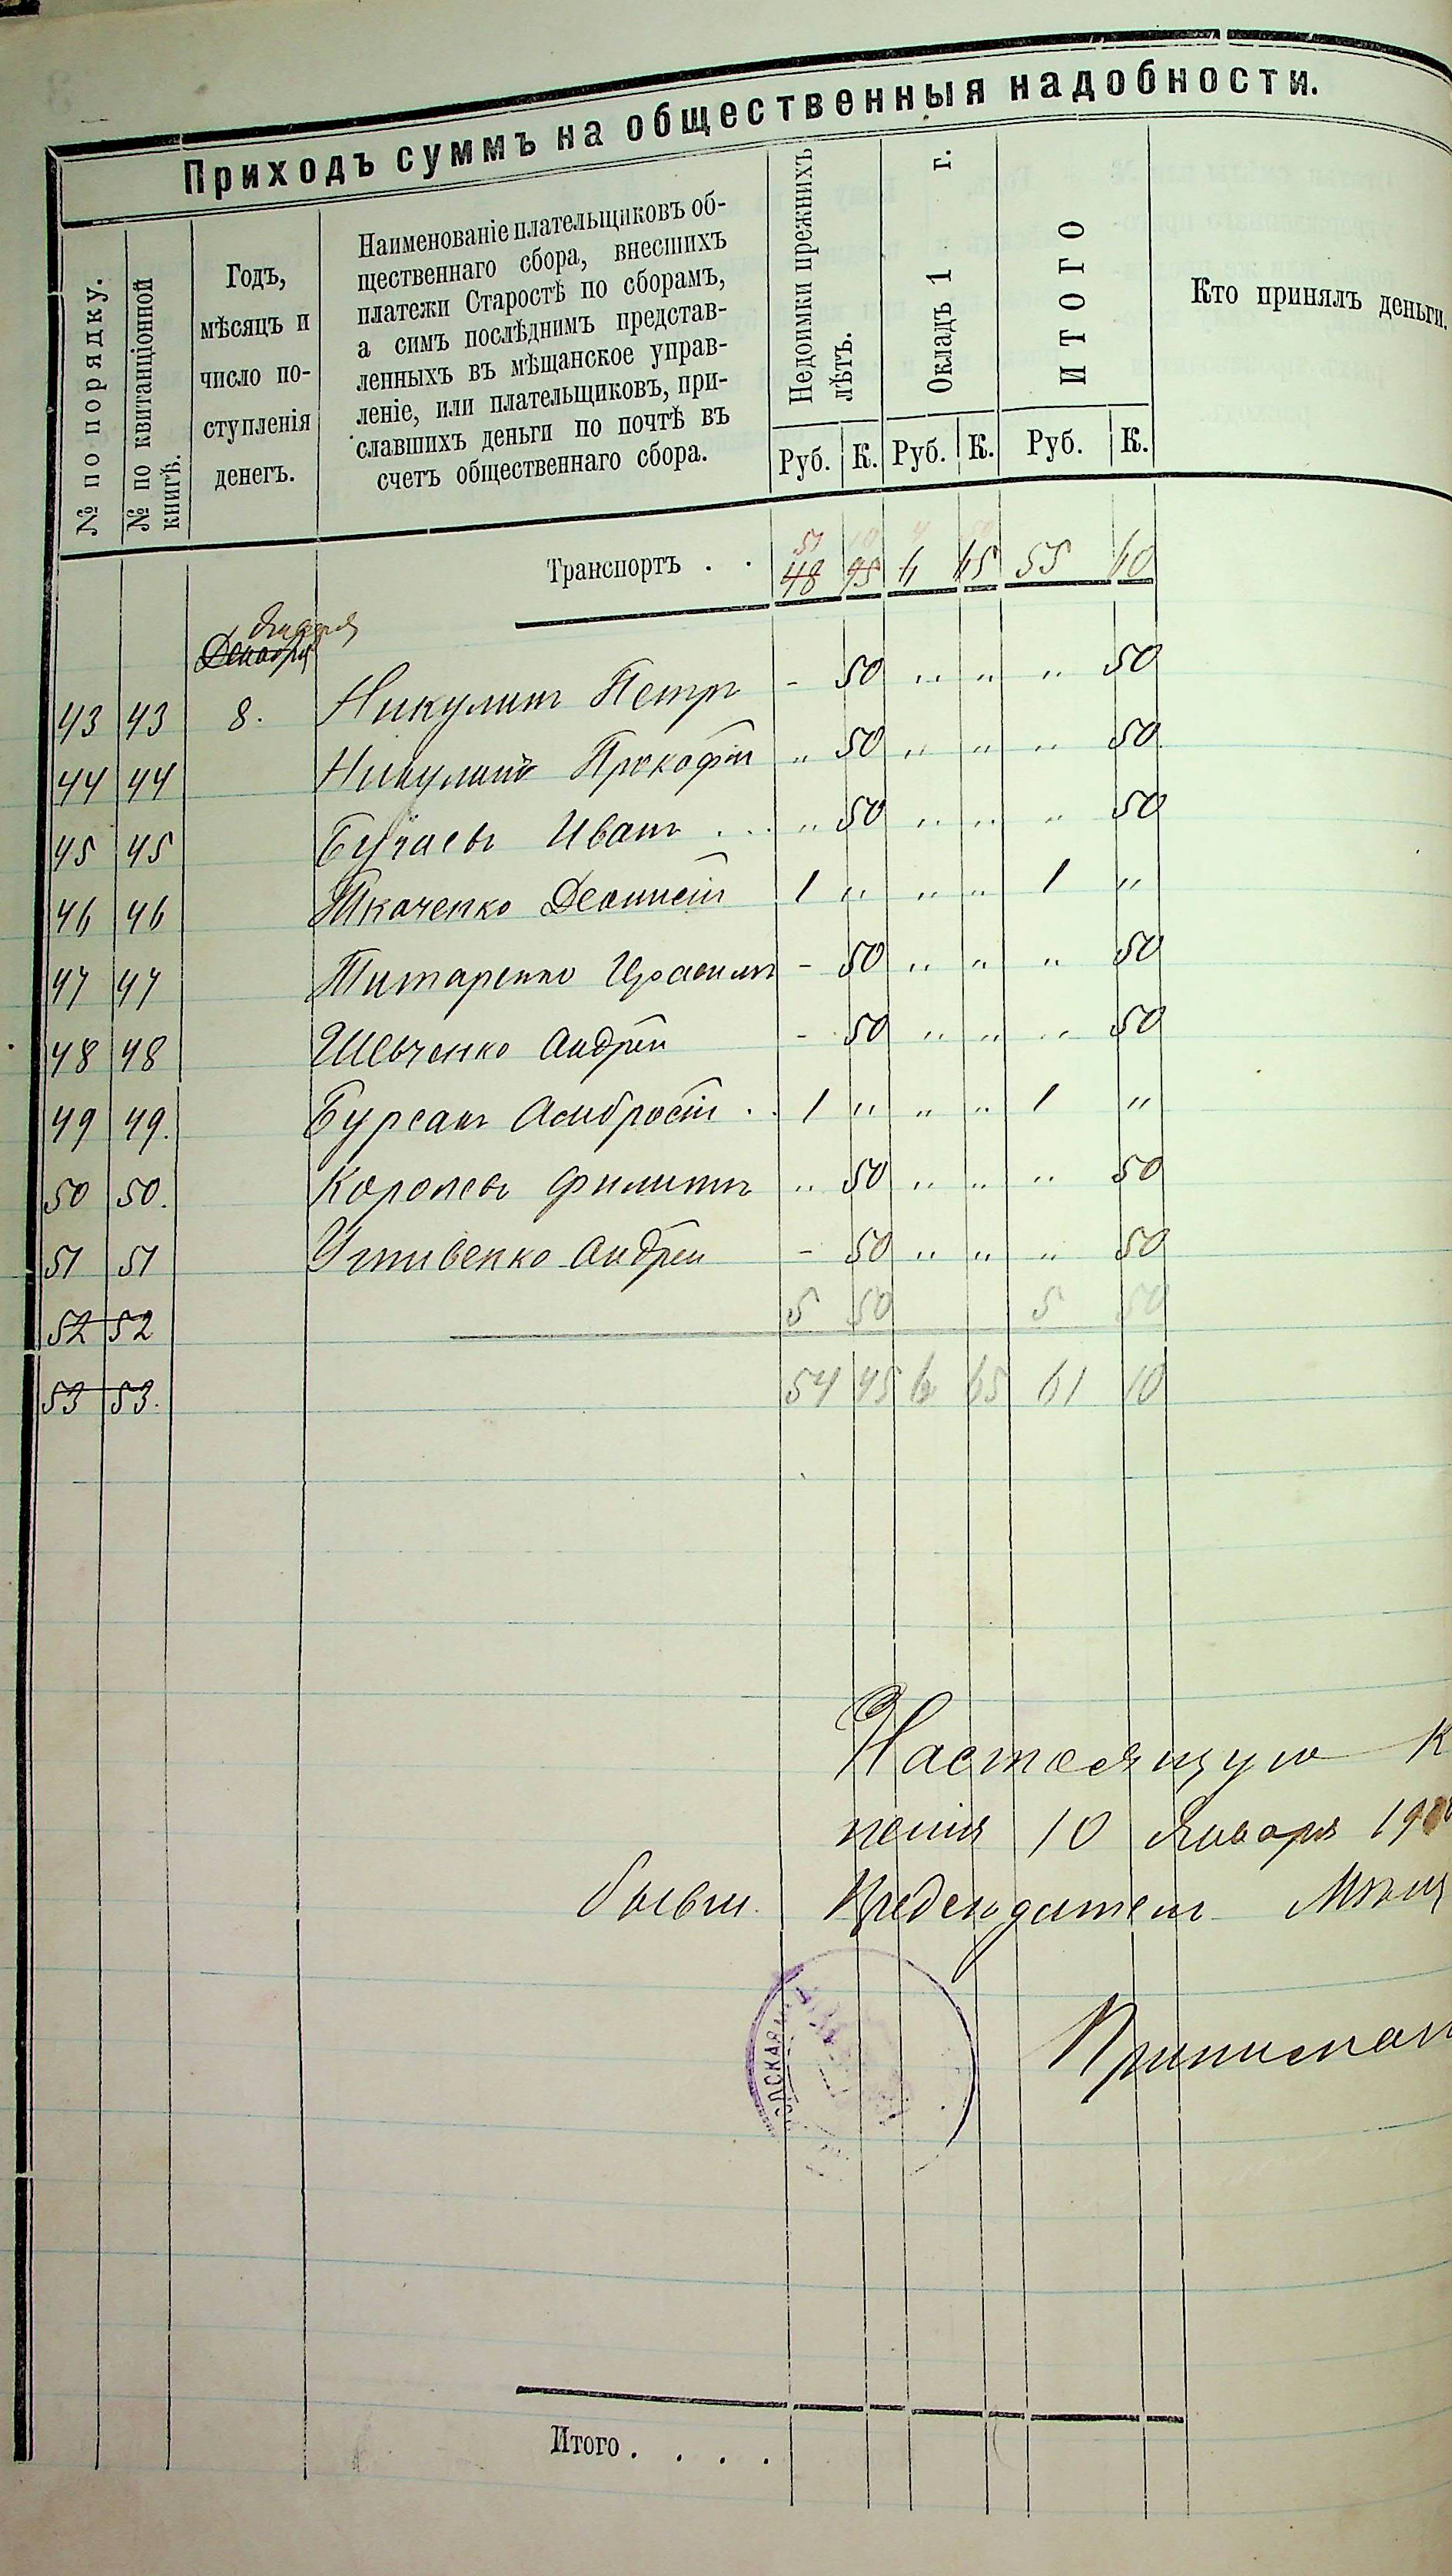 Приходъ суммъ на общественныя надобности.
№ по порядку.
№ по квитанціонной
книгѣ.
Годъ,
мѣсяцъ и
число по-
ступленія
денегъ.
Наименованіе плательщиковъ об-
щественнаго сбора, внесшихъ
платежи Старостѣ по сборамъ,
а симъ послѣднимъ представ-
ленныхъ въ мѣщанское управ-
леніе, или плательщиковъ, при-
славшихъ деньги по почтѣ въ
счетъ общественнаго сбора.
Недоимки прежнихъ
лѣтъ.
Окладъ 1 г.
ИТОГО
Кто принялъ деньги.
Руб. К. Руб. К. Руб. К.
51
Транспортъ . . 48 95 6 65 55 60
Января
Декабря
43 43 8. Никулинъ Петръ - 50 " " " 50
44 44 Никулинъ Прокофій " 50 " " " 50
45 45 Иванъ . . . " 50 " " " 50
46 46 Ткаченко 1 " " " 1 "
47 47 Титаренко - 50 " " " 50
48 48 Шевченко Андрей - 50 " " " 50
49 49. Бурсакъ Амбросій . . 1 " " " 1 "
50 50. Королевъ Филиппъ " 50 " " " 50
51 51 Андрей - 50 " " " 50
5 50 5 50
52 52
54 45 6 65 61 10
53 53.
Настоящую к
10 Января 19
бывш. Предсѣдатель Мѣщ
Итого . . . .